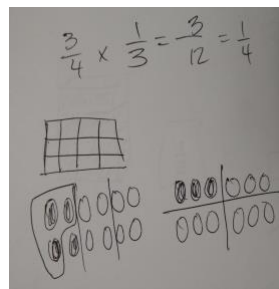 3/4 × 1/3 = 3/12 = 1/4